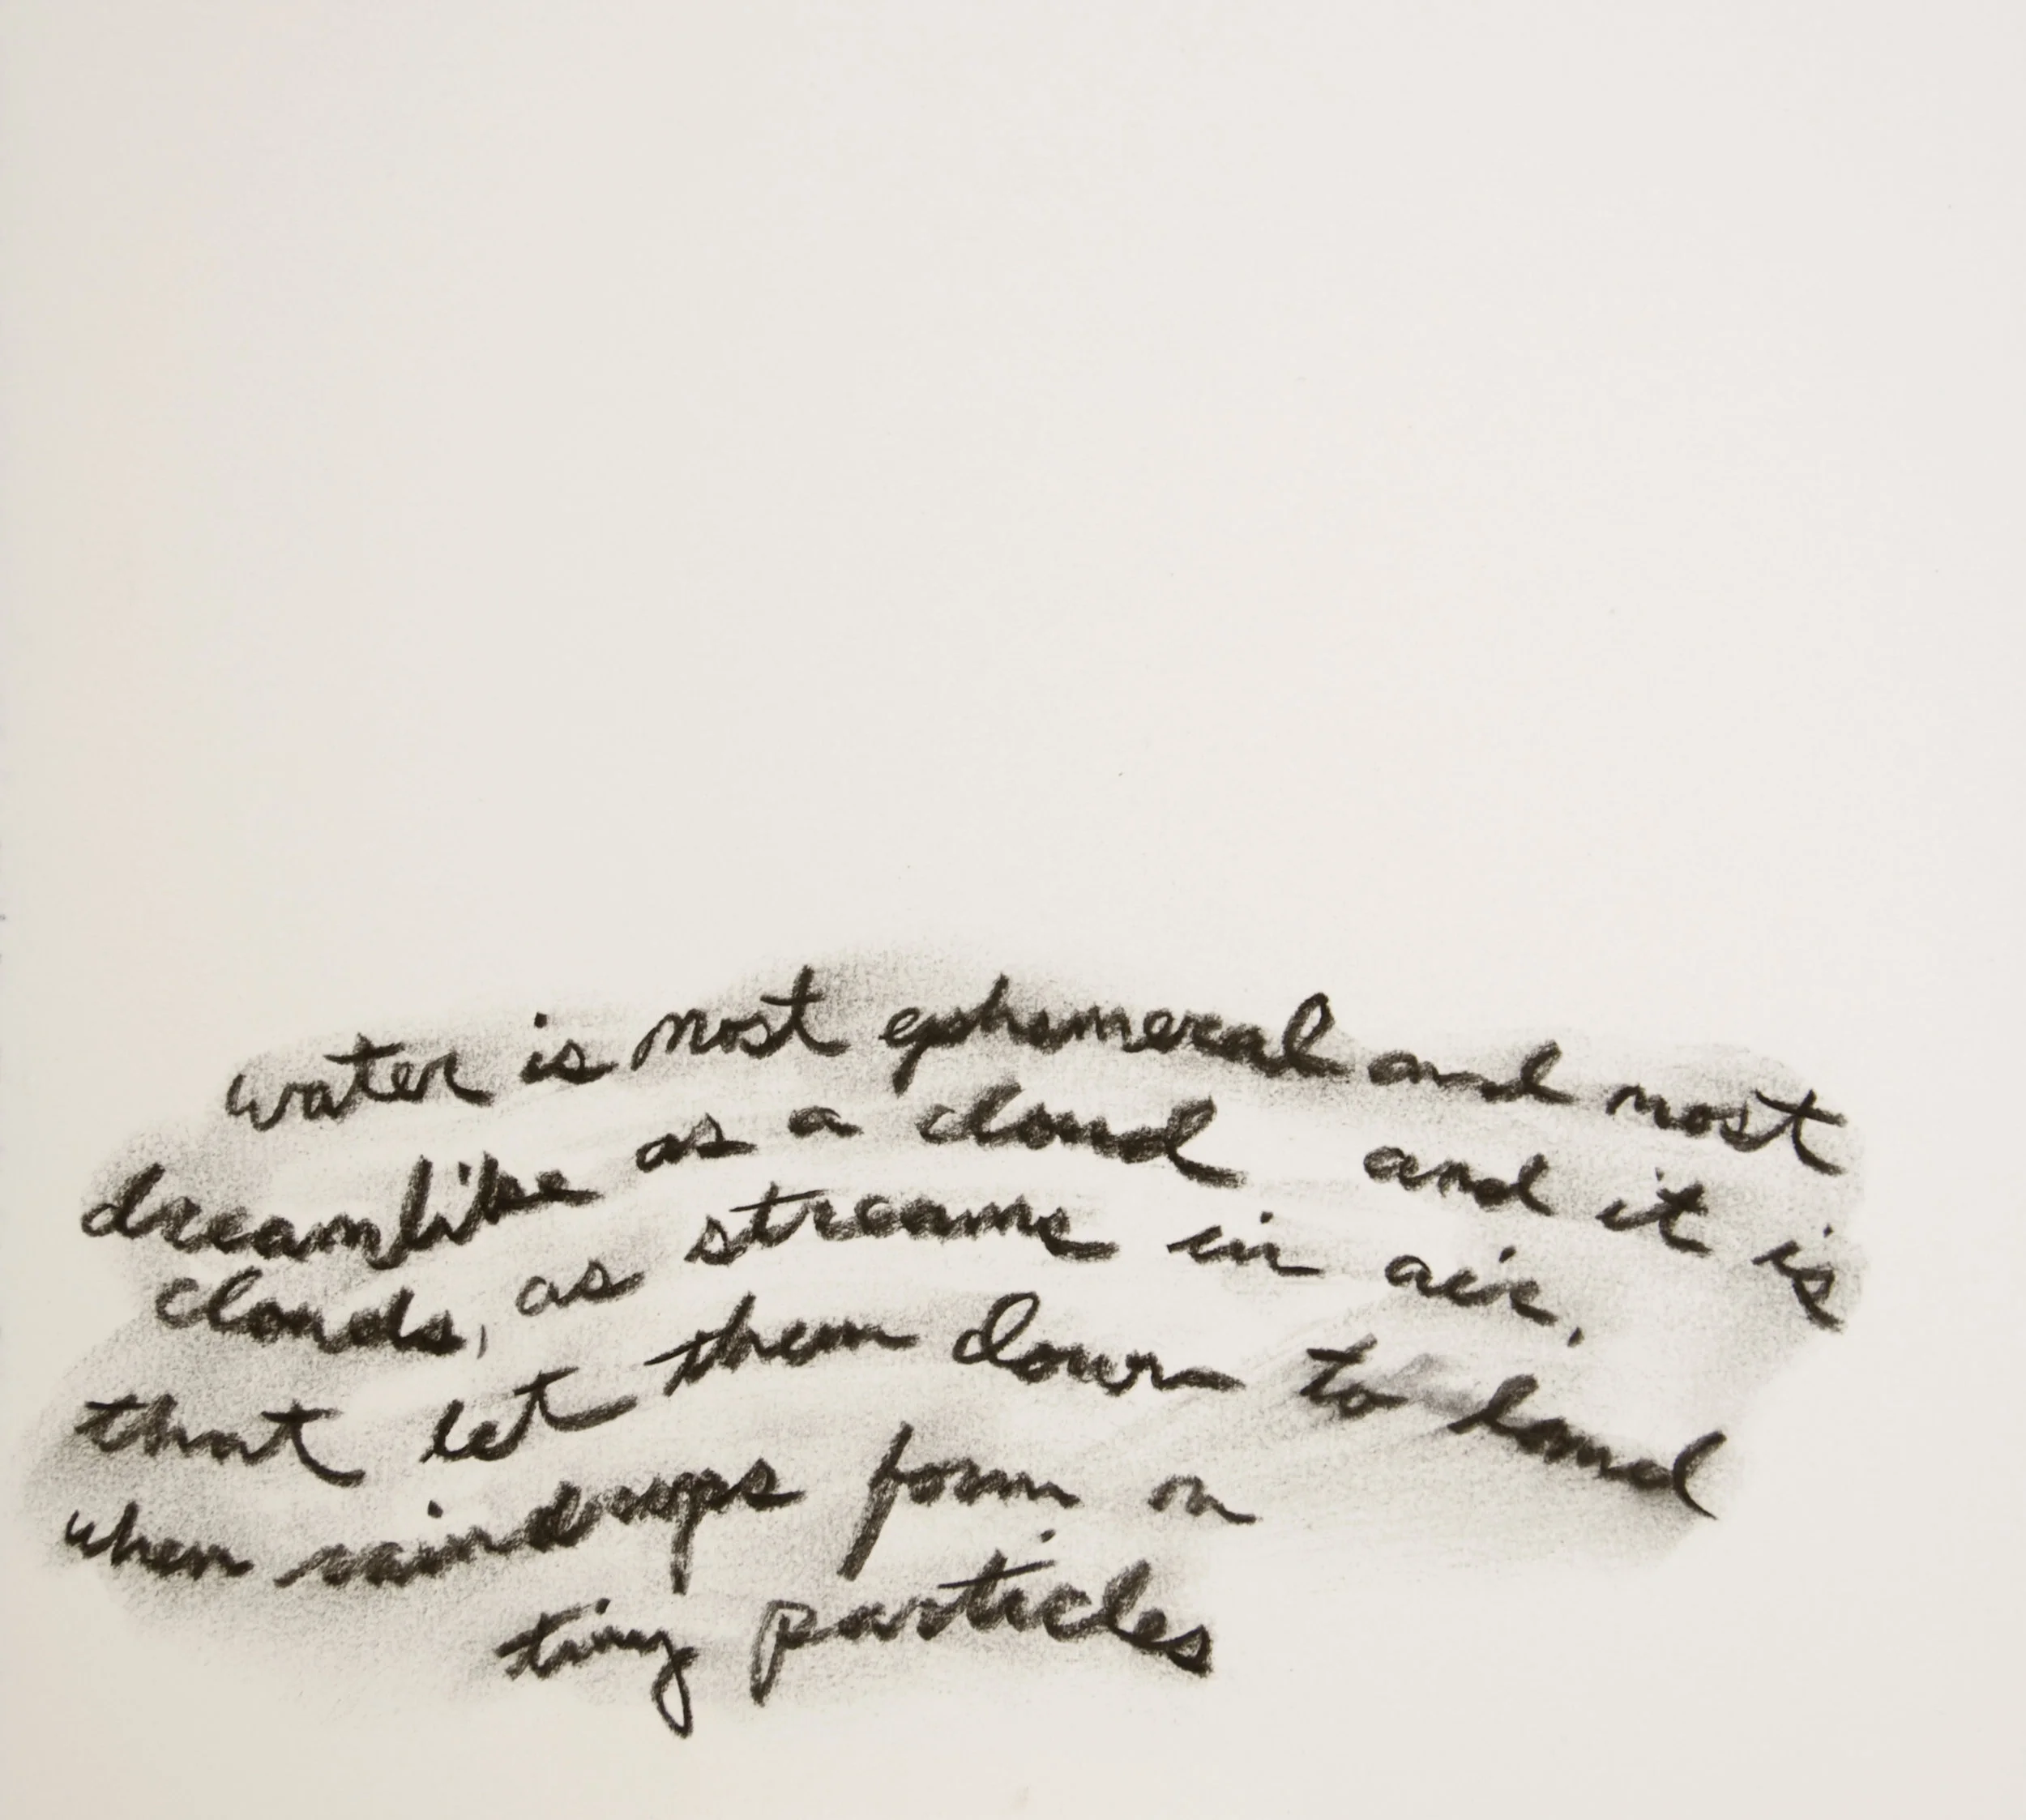 water is most ephemeral and most
dreamlike as a cloud and it is
clouds, as streams in air,
that let them down to land
when raindrops form on
tiny particles